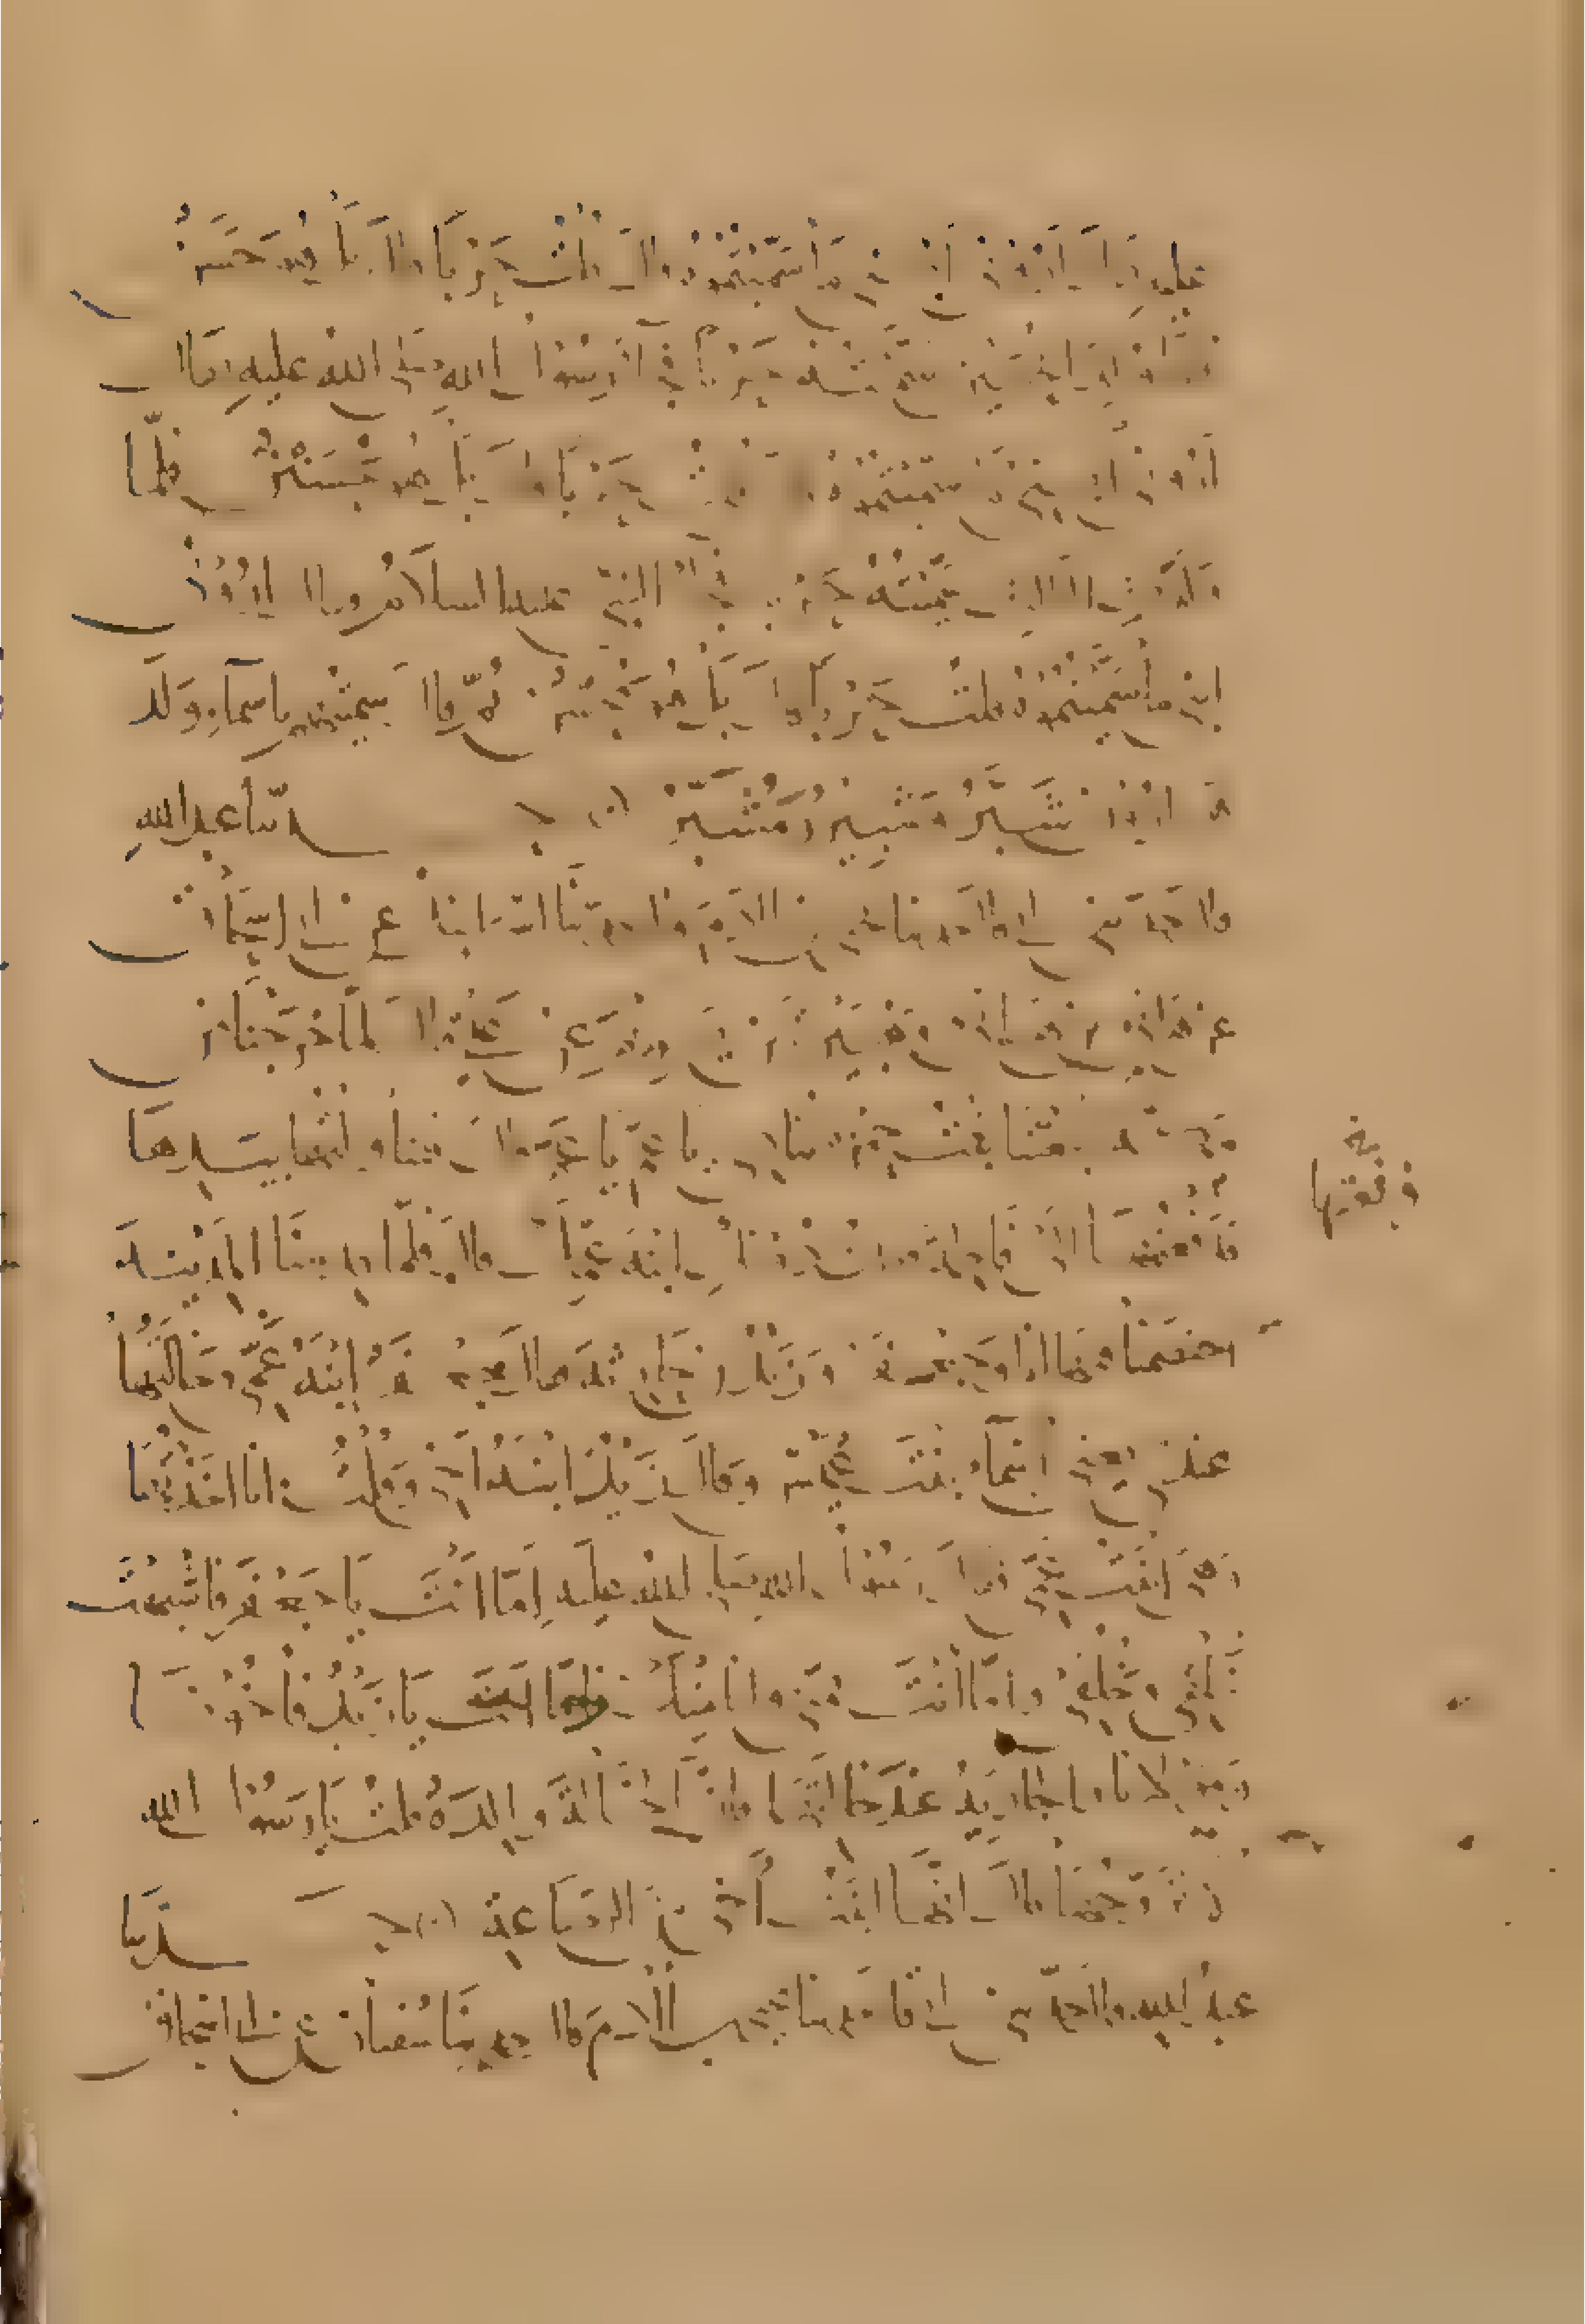 عليه فقال اروني ابني ما سميتموه قال قلت حربا قال بل هو حسن
فلما ولد الحسين سميته حربا فجا رسول الله صلى الله عليه فقال
اروني ابني ما سميتموه قال قلت حربا قال بل هو حسين فلما
ولد الثالث سميته حربا فجا النبي عليه السلام فقال اروني
ابني ما سميتموه قلت حربا قال بل هو محسن ثم قال سميتهم باسماء ولد
هرون شبر وشبير ومشبر حدثنا عبد الله
قال حدثني ابي قال حدثنا يحيى بن ادم قال حدثنا اسرائيل عن ابي اسحاق
عن هانئ بن هانئ وهبيرة بن يريم عن علي قال لما خرجنا من
مكة اتبعتنا ابنة حمزة تنادي يا عم يا عم قال فتناولتها بيدها
فدفعتها الى فاطمة فقلت دونك ابنة عمك قال فلما قدمنا المدينة
اختصمنا فيها انا وجعفر وزيد بن حارثة فقال جعفر ابنة عمي وخالتها
عندي يعني اسماء بنت عميس وقال زيد ابنة اخي وقلت انا اخذتها
وهي ابنة عمي فقال رسول الله صلى الله عليه اما انت يا جعفر فاشبهت
خلقي وخلقي واما انت يا علي فمني وانا منك واما انت يا زيد فاخونا
ومولانا والجارية عند خالتها فان الخالة والدة قلت يا رسول الله
الا تزوجها قال انها ابنة اخي من الرضاعة حدثنا
عبد الله قال حدثني ابي قال حدثنا يحيى بن ادم قال حدثنا سفيان عن ابي اسحاق
فدفعتها